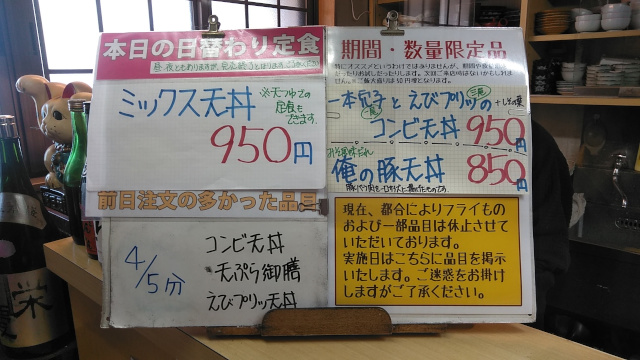 本日の日替わり定食
昼夜ともありますが、売り切れることはあります。ご了承ください
ミックス天丼
※天つゆでの
定食も
できます。
950円
前日注文の多かった品目
4/5分
コンビ天丼
天ぷら御膳
えびプリッツ天丼
期間・数量限定品
一本穴子とえびプリッツの
コンビ天丼 950円
みそ風味だれ
俺の豚天丼 850円
現在、都合によりフライもの
および一部品目は休止させて
いただいております。
実施日はこちらに品目を掲示
いたします。ご迷惑をお掛け
しますがご了承ください。
栄